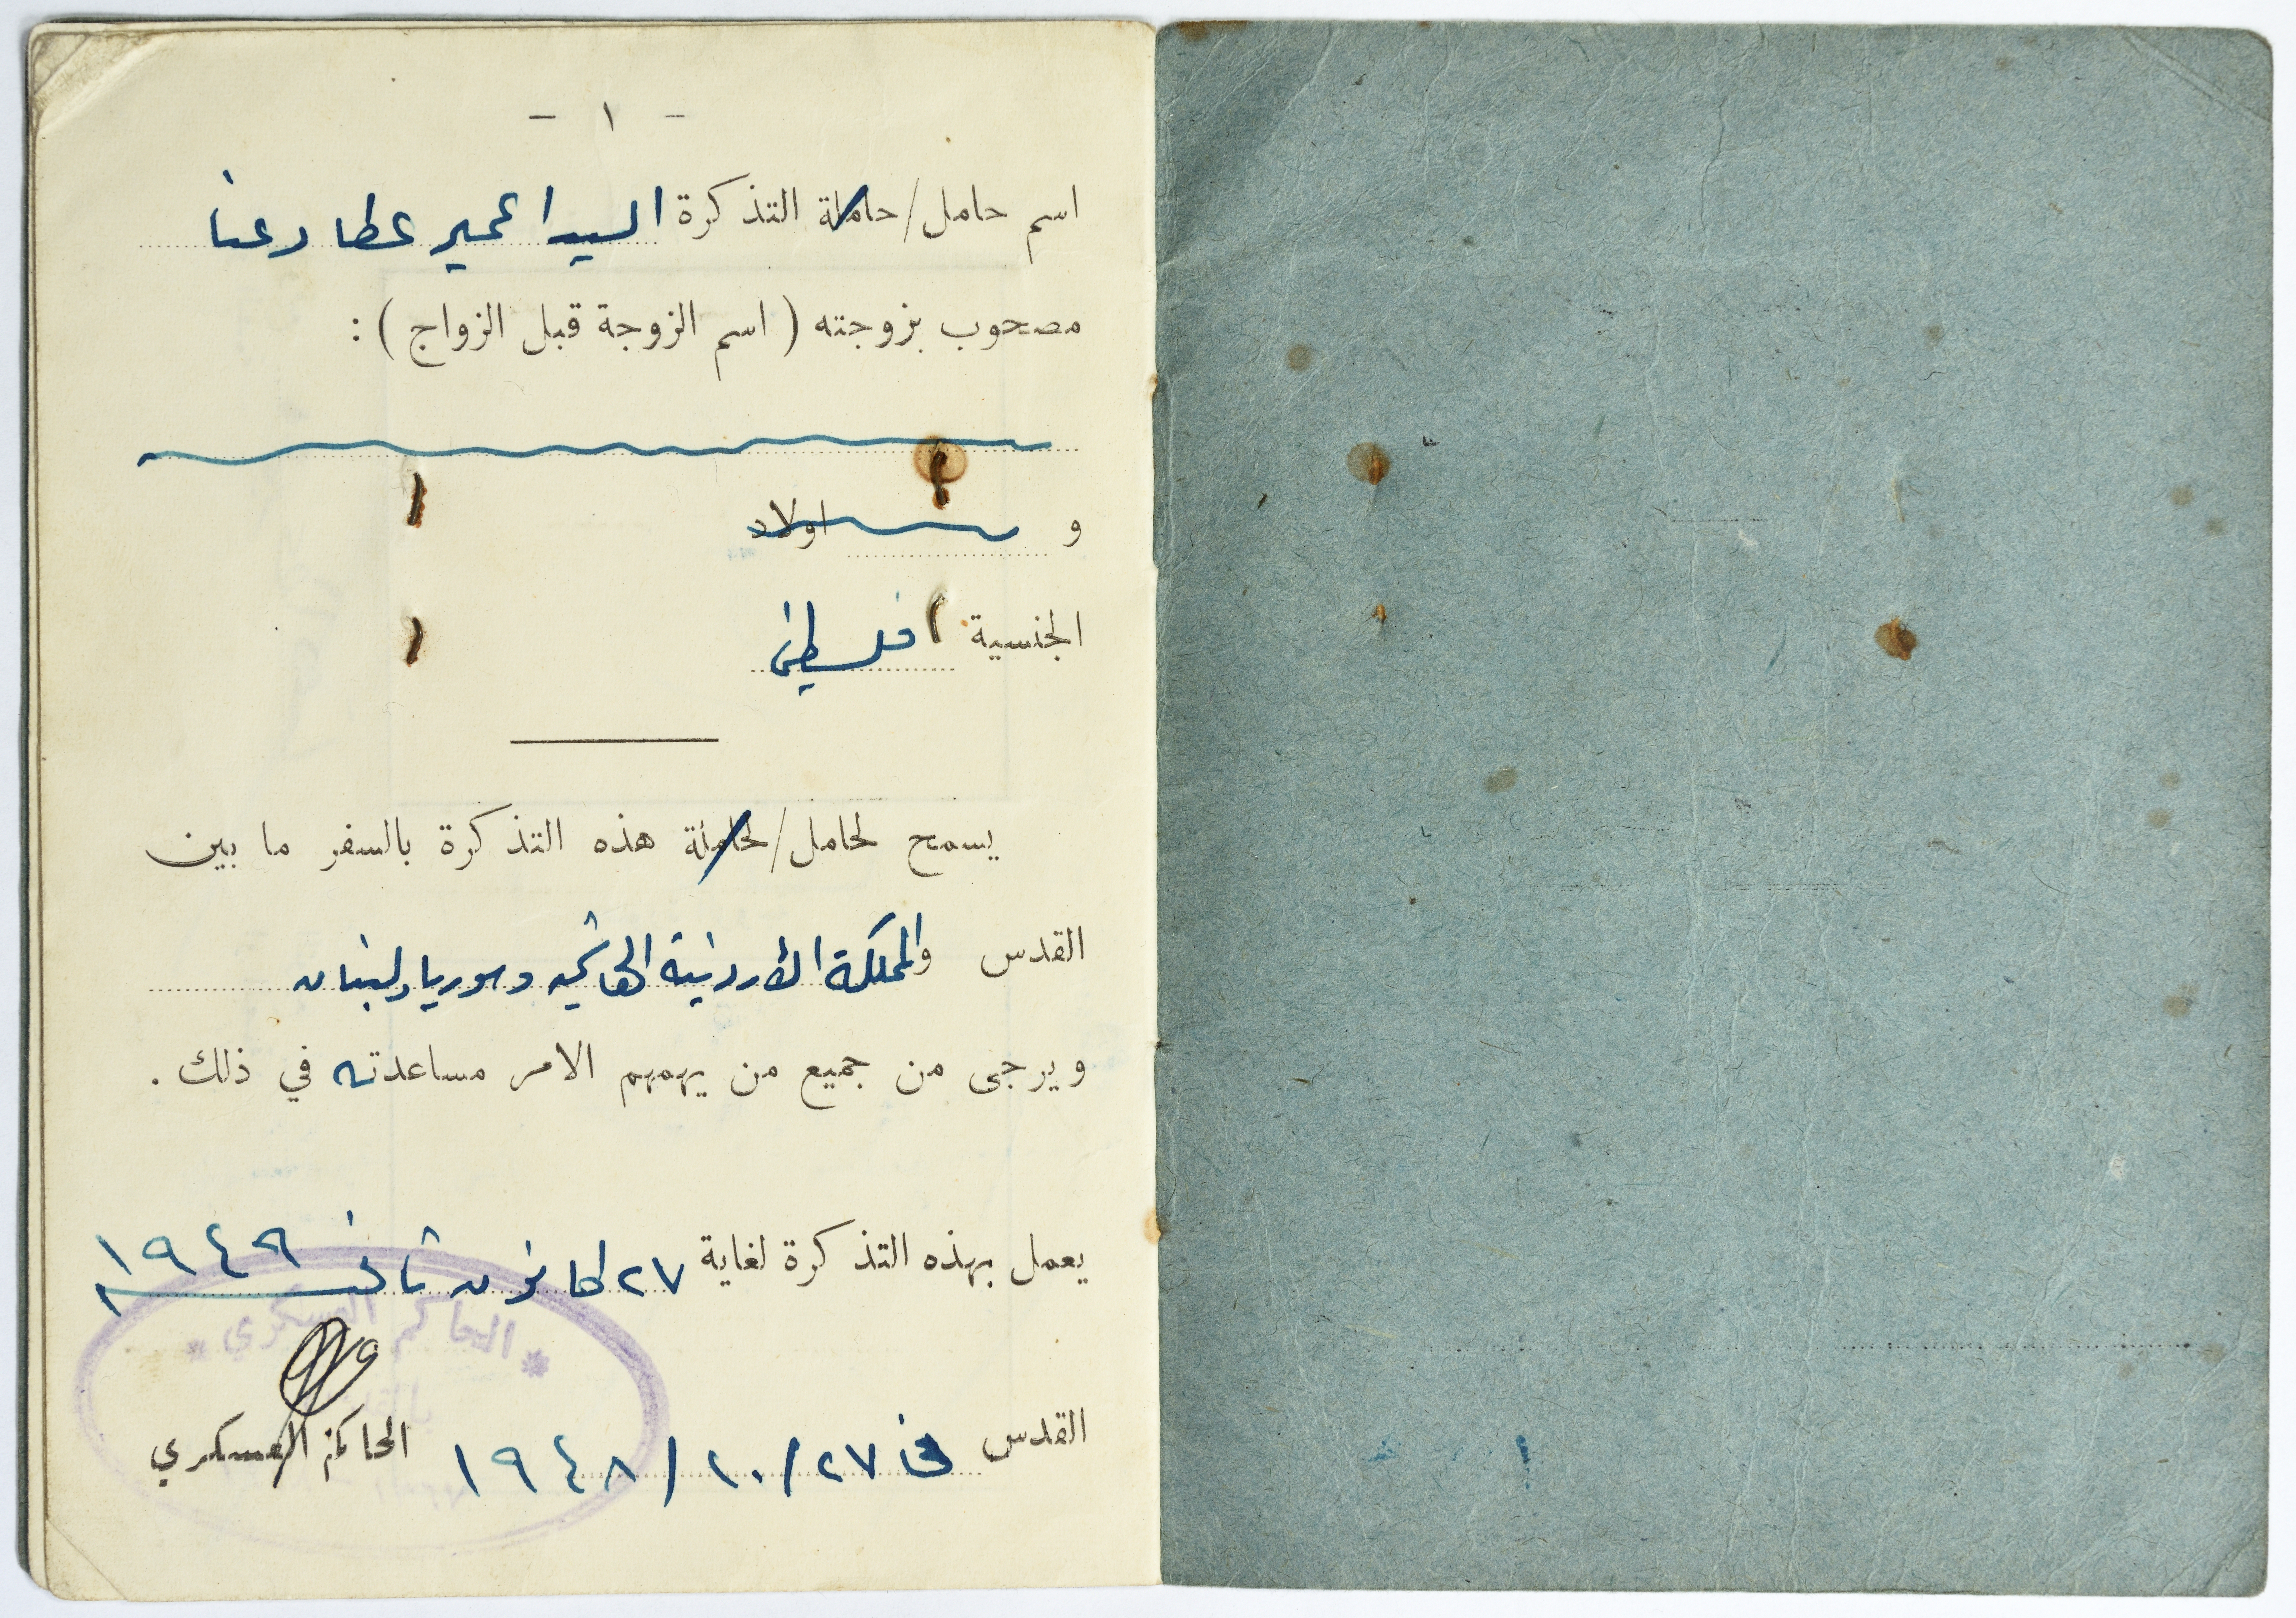 - ١ -
اسم حامل/حاملة التذكرة السيد عطا
مصحوب بزوجته ( اسم الزوجة قبل الزواج ) :
و اولاد
الجنسية فلسطيني
يسمح لحامل/لحاملة هذه التذكرة بالسفر ما بين
القدس والمملكة الأردنية الهاشميه وسوريا ولبنان
ويرجى من جميع من يهمهم الامر مساعدته في ذلك .
يعمل بهذه التذكرة لغاية ٢٧ كانون ثاني ١٩٤٩
الحاكم العسكري
القدس في ٢٧/١٠/١٩٤٨ الحاكم العسكري